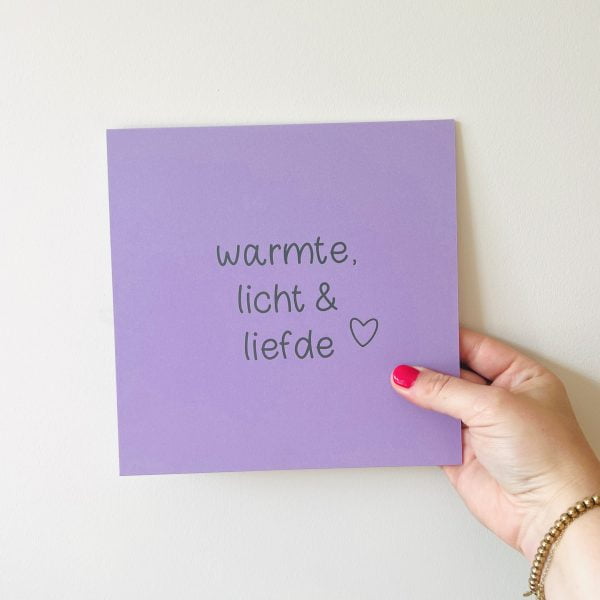 warmte,
licht &
liefde ♡